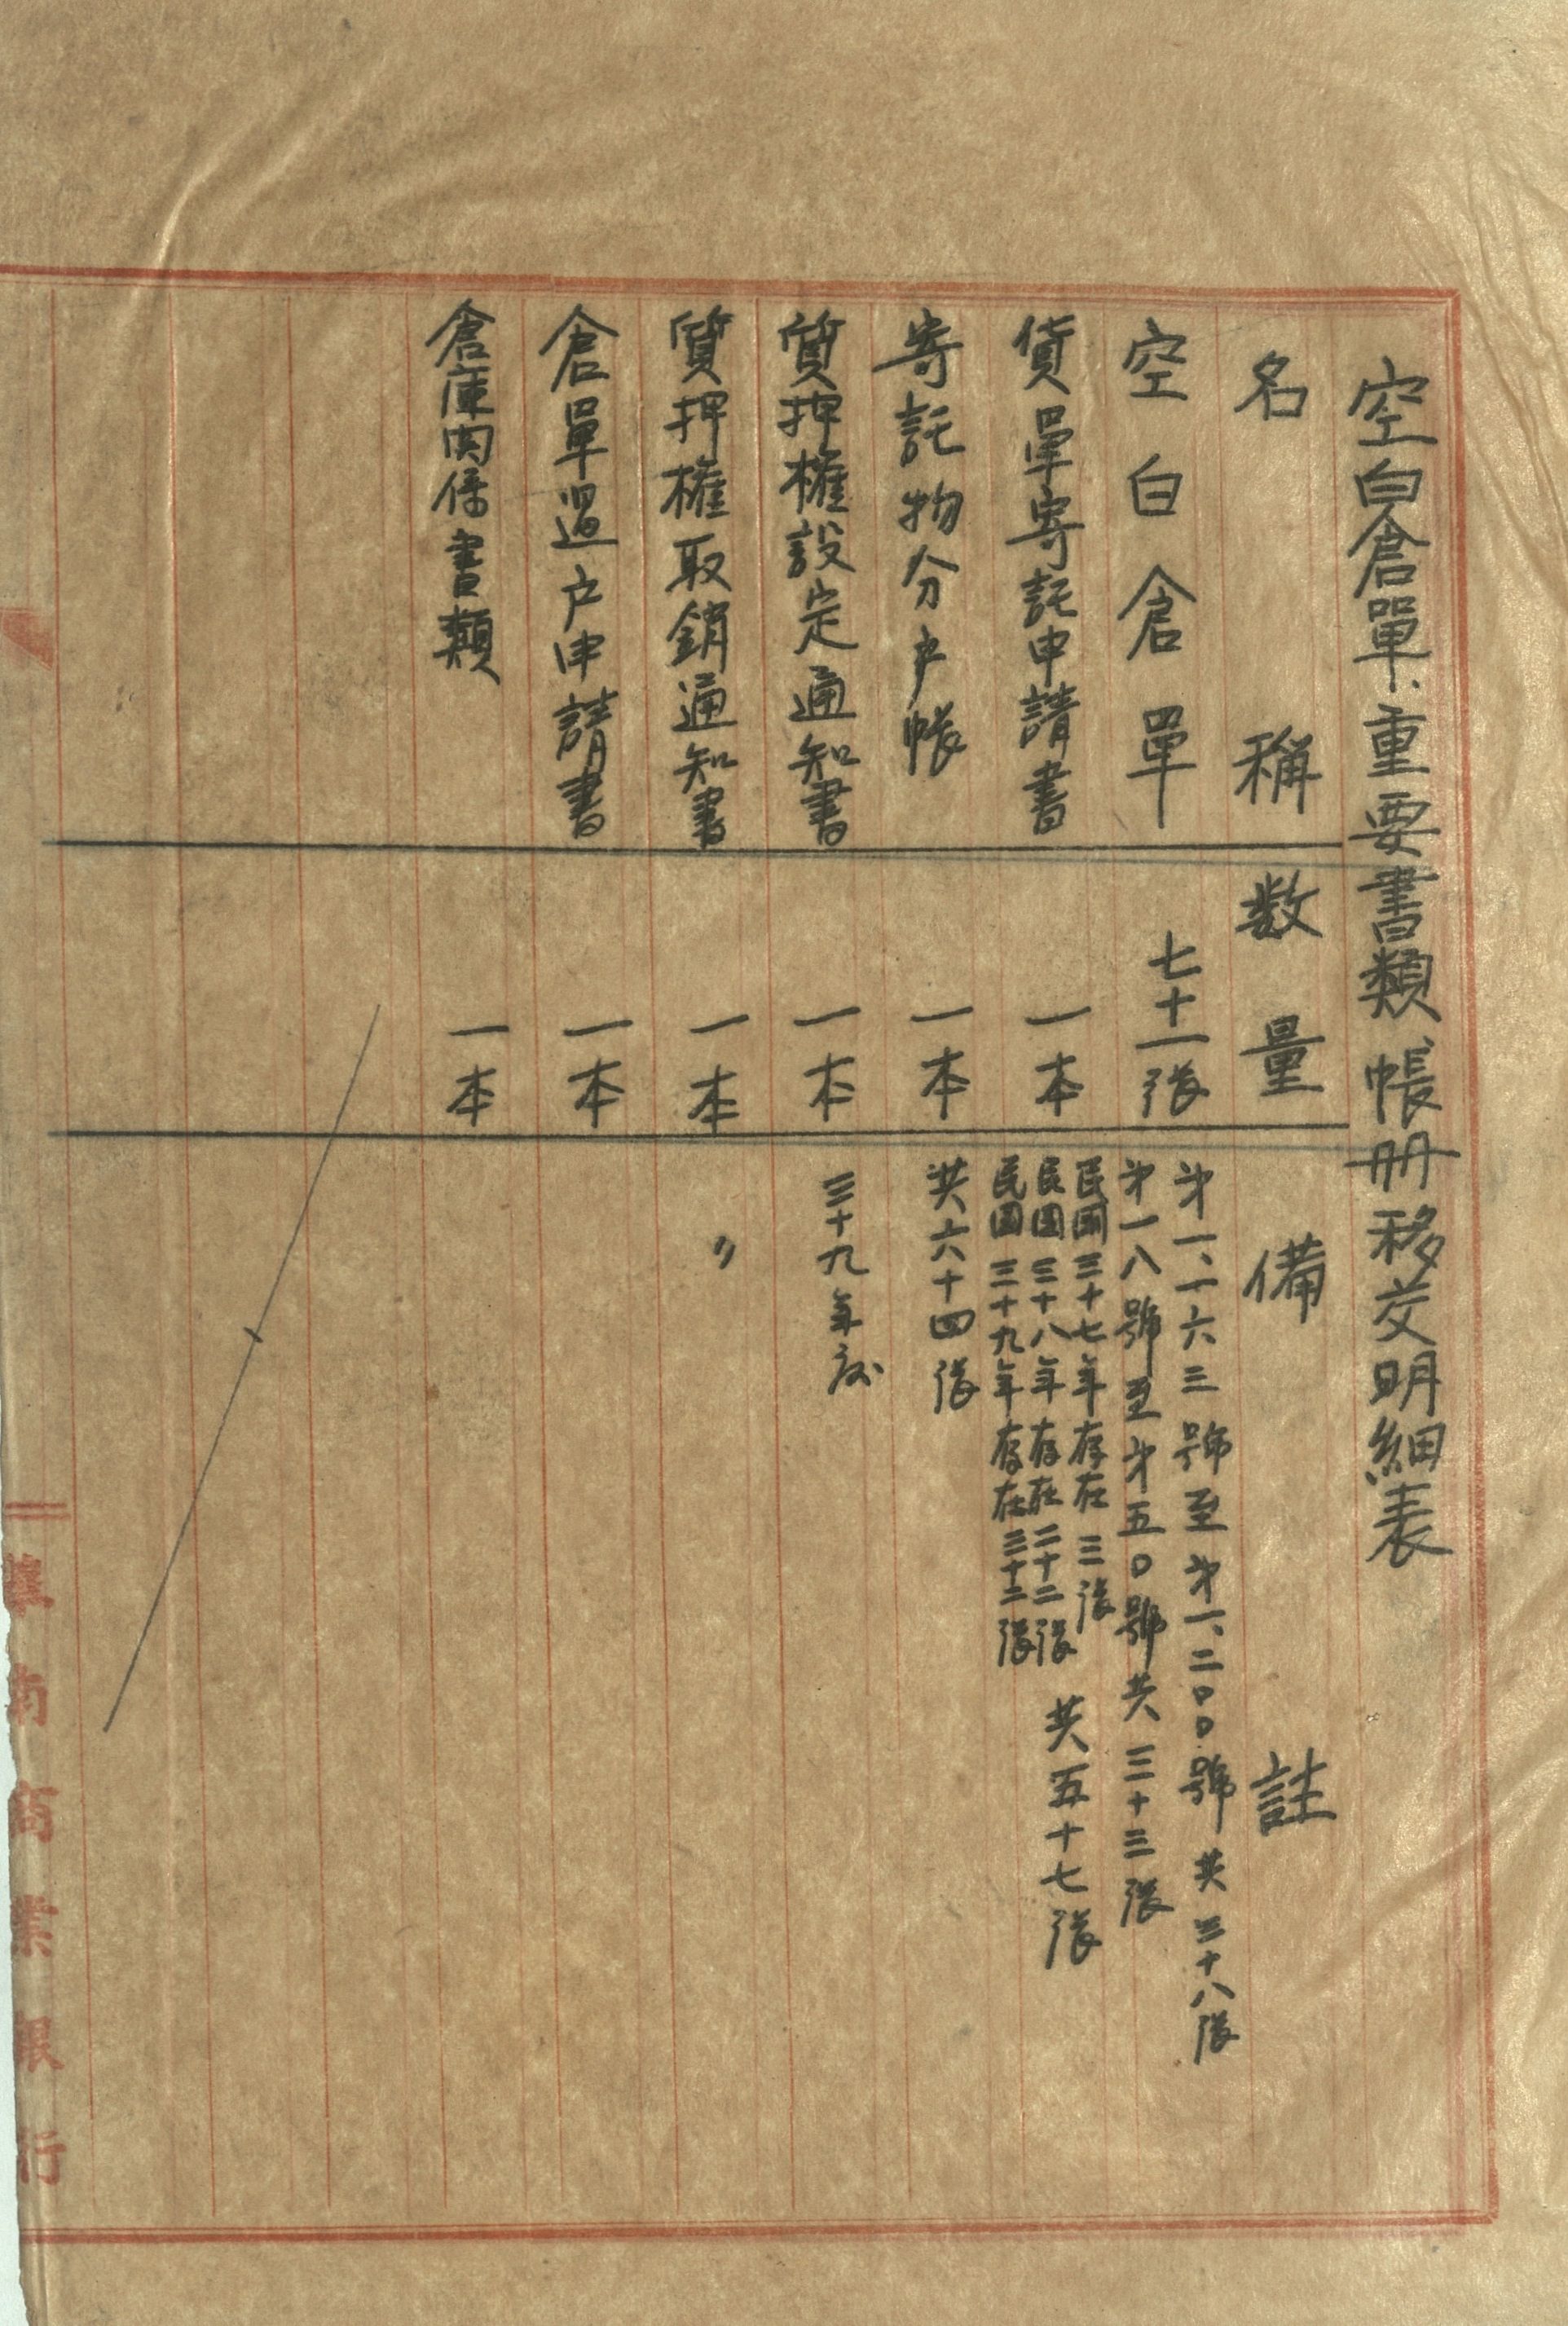 空白倉單、重要書類、帳册移交明細表
名稱 数量 備註
空白倉單 七十一張 㐧一、一六三號至㐧一、二〇〇號共三十八張
㐧一八號至㐧五〇號共三十三張
貨單寄託申請書 一本 民國三十七年存在三張
民國三十八年存在二十二張 共五十七張
民國三十九年存在三十二張
寄託物分户帳 一本 共六十四張
質押權設定通知書 一本 三十九年度
質押權取銷通知書 一本 〃
倉單過户申請書 一本
倉庫関係書類 一本
華南商業銀行